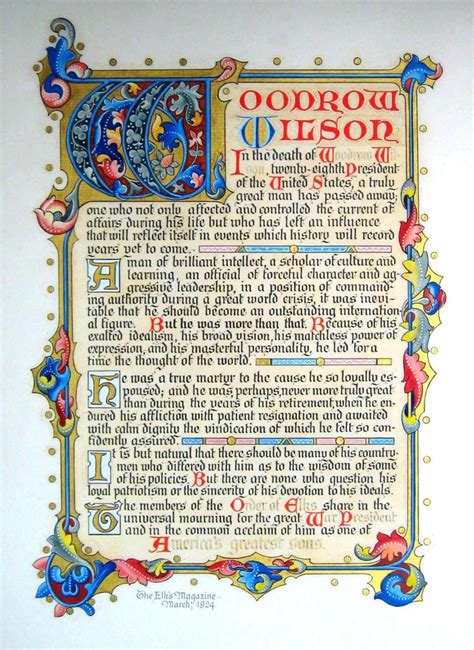 WOODROW
WILSON
In the death of Woodrow Wil-
son, twenty-eighth President
of the United States, a truly
great man has passed away;
one who not only affected and controlled the current of
affairs during his life but who has left an influence
that will reflect itself in events which history will record
years yet to come.
A man of brilliant intellect, a scholar of culture and
learning, an official of forceful character and ag-
gressive leadership, in a position of command-
ing authority during a great world crisis, it was inevi-
table that he should become an outstanding internation-
al figure. But he was more than that. Because of his
exalted idealism, his broad vision, his matchless power of
expression, and his masterful personality, he led for a
time the thought of the world.
He was a true martyr to the cause he so loyally es-
poused; and he was perhaps never more truly great
than during the years of his retirement, when he en-
dured his affliction with patient resignation and awaited
with calm dignity the vindication of which he felt so con-
fidently assured.
It is but natural that there should be many of his country-
men who differed with him as to the wisdom of some
of his policies. But there are none who question his
loyal patriotism or the sincerity of his devotion to his ideals.
The members of the Order of Elks share in the
universal mourning for the great War President
and in the common acclaim of him as one of
America's greatest sons.
The Elk's Magazine
March, 1924